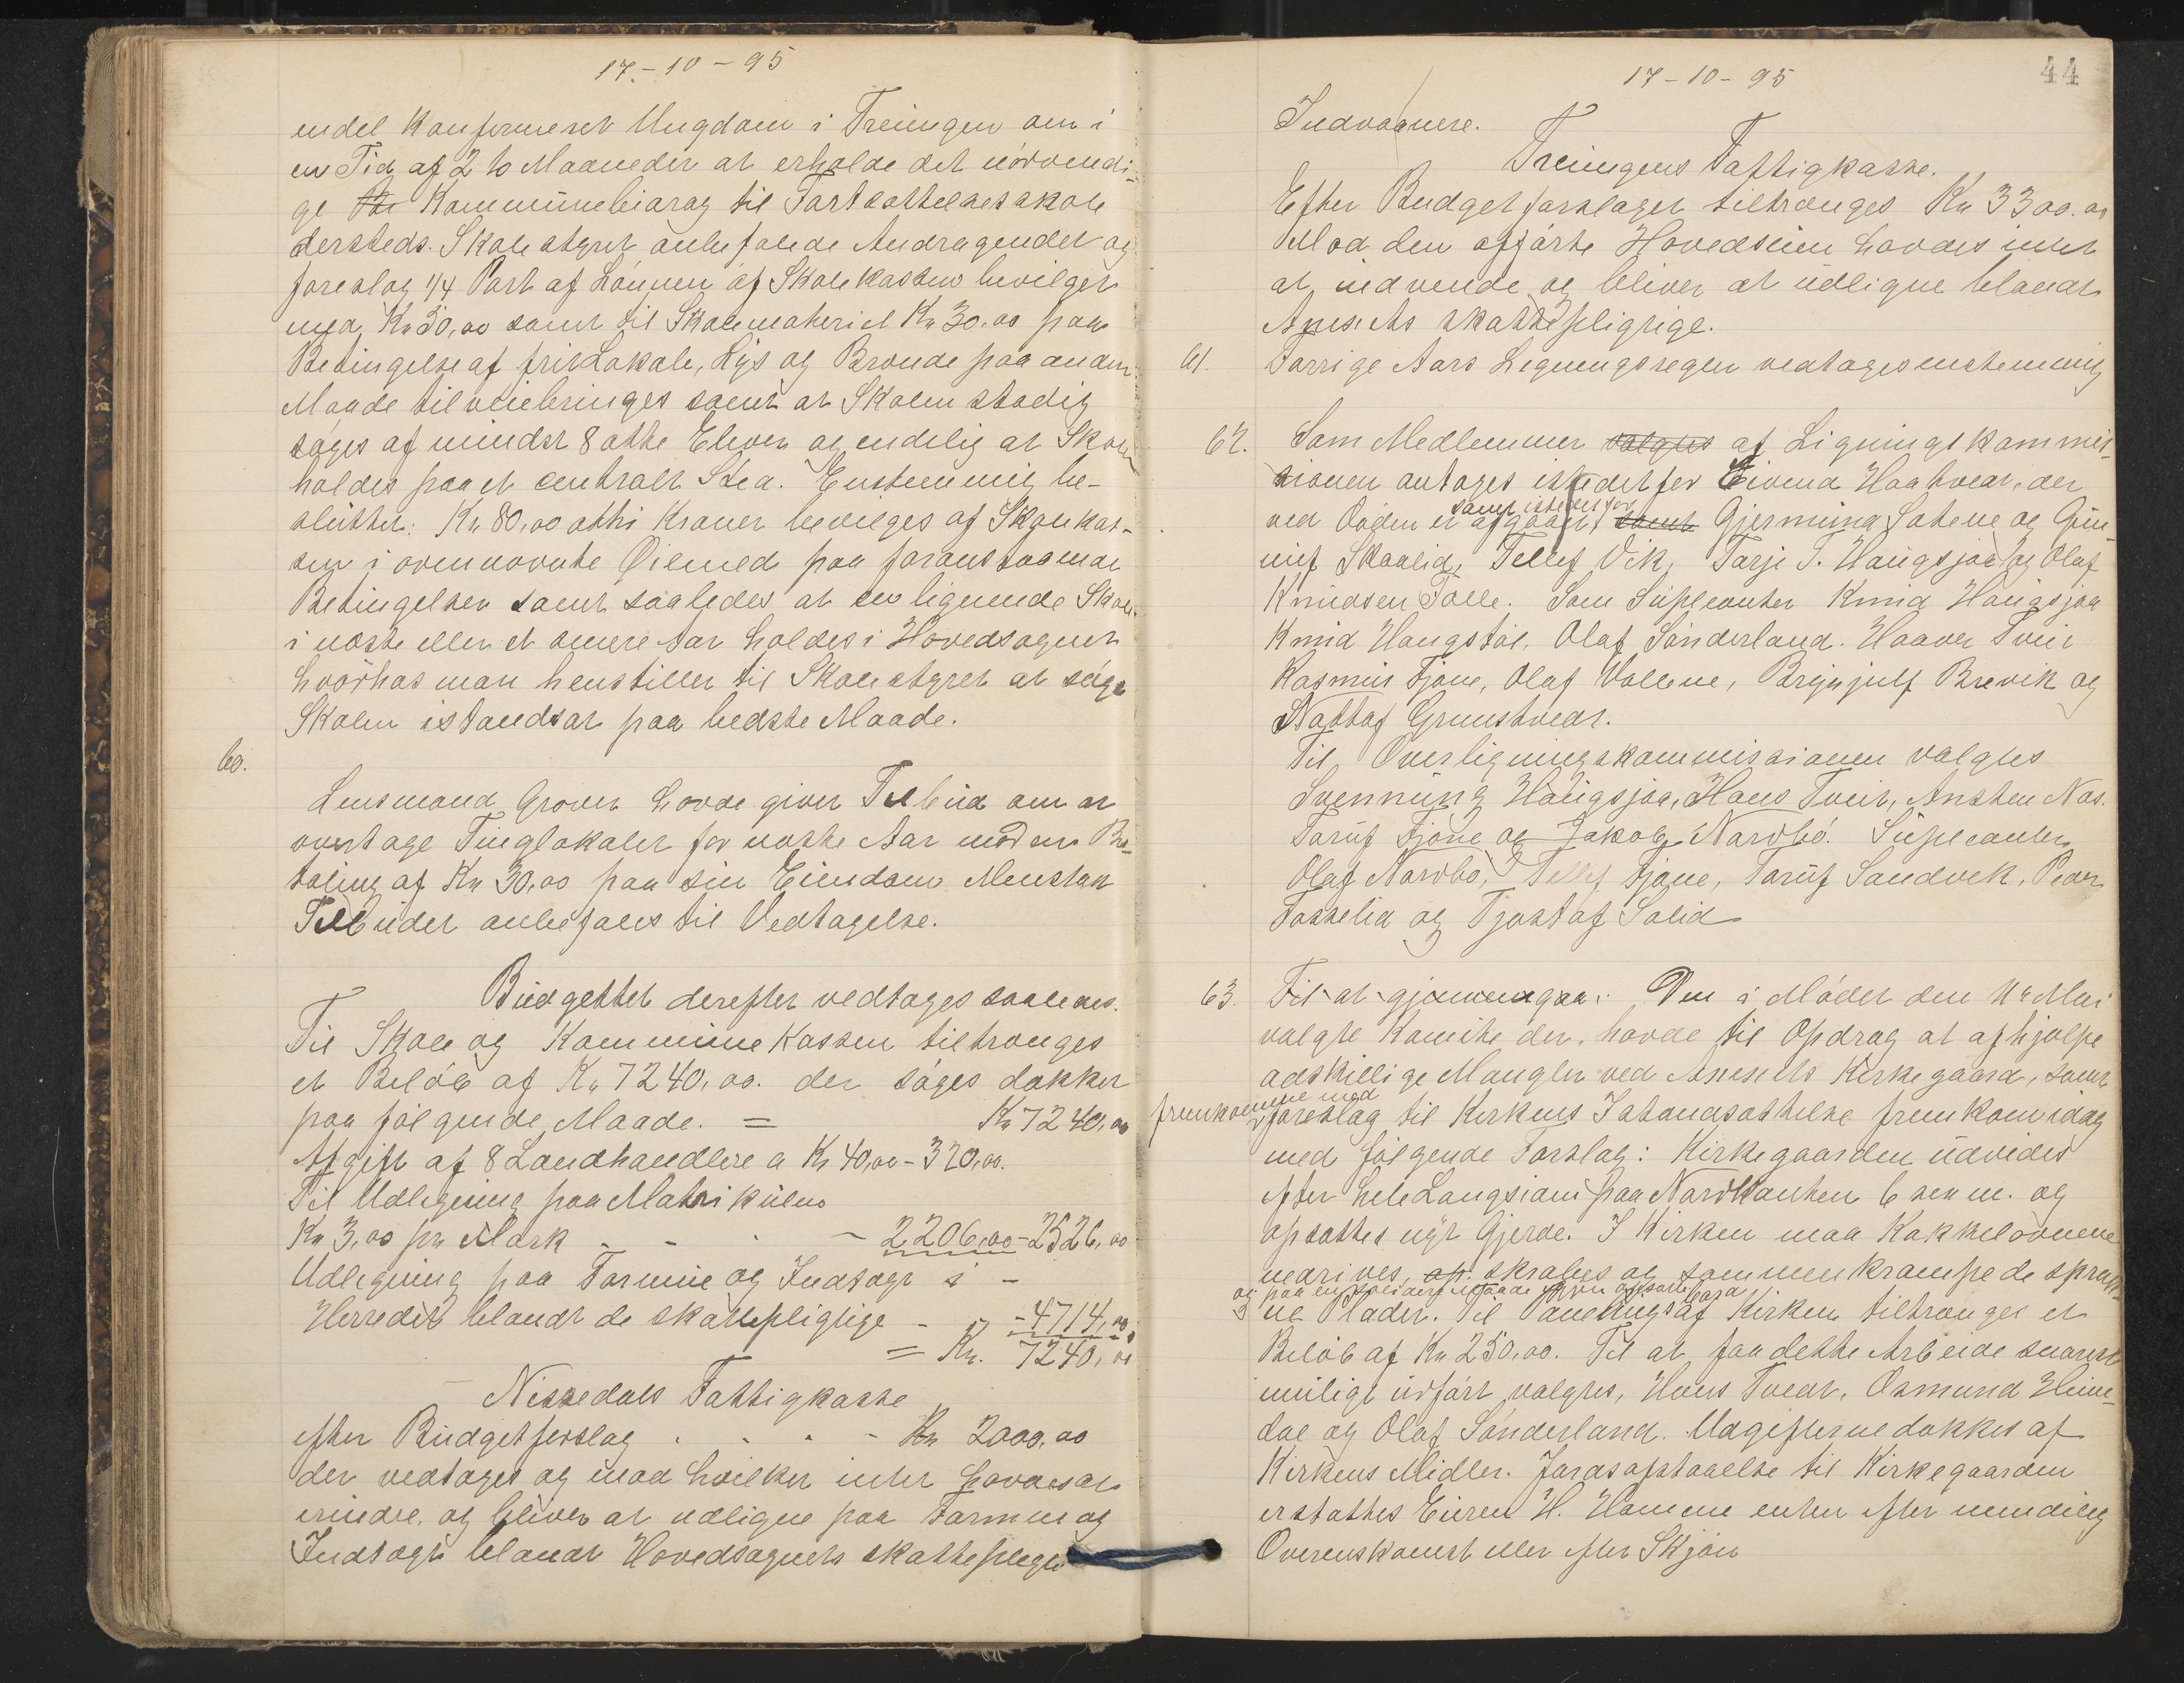 17-10-95
endel konfirmeret Ungdom i Treungen om i
en Tid af 2 to Maaneder at erholde det nödvendi-
ge Kommunebidrag til Fortsættelsesskole
dersteds. Skolestyret anbefalede Andragendet og
foreslog 1/4 Part af Lönnen af Skolekassen bevilget
med Kr 50,00 samt til Skolemateriel Kr 30,00 paa
Betingelse af frit Lokale, Lys og Brænde paa anden
Maade tilveiebringes samt at Skolen stadig
söges af mindst 8 otte Elever og endelig at Skolen
holdes paa et centralt Sted. Enstemmig be-
sluttet: Kr 80,00 otti Kroner bevilges af Skolekas-
sen i ovennævnte Öiemed paa foranstaaende
Betingelser samt saaledes at en lignende Skole
i næste eller et senere Aar holdes i Hovedsognet
hvorhos man henstiller til Skolestyret at söge
Skolen istandsat paa bedste Maade.
60.
Lensmand Grover Hovde giver Tilbud om at
overtage Tinglokalet for næste Aar mod en Be-
taling af Kr 30,00 paa sin Eiendom Menstad
Tilbudet anbefales til Vedtagelse.
Budgettet derefter vedtages saaledes.
Til Skole og Kommune Kassen tiltrænges
et Belöb af Kr 7240,00. der söges dækket
paa fölgende Maade. = Kr 7240,00
Afgift af 8 Landhandlere a Kr 40,00 - 320,00.
Til Udligning paa Matrikülen
Kr 3,00 pr Mark - - - 2206,00 - 2526,00
Udligning paa Formue og Indtægt i -
Herredet blandt de skattepligtige - - 4714,00
= Kr. 7240,00
Nissedals Fattigkasse
efter Budgetforslag . - . - Kr 2000,00
der vedtages og mod hvilket intet havdes at
erindre, og bliver at udligne paa Formue og
Indtægt blandt Hovedsognets skattepligti
44
17-10-95
Indvaanere.
Treungens Fattigkasse.
Efter Budgetforslaget tiltrænges Kr 3300.00
Mod den opförte Hovedsum havdes intet
at indvende og bliver at udligne blandt
Annexets skattepligtige.
61. Forrige Aars Ligningsregler vedtages enstemmig
62. Som Medlemmer valgtes af Ligningskommis-
sionen antages istedetfor Eivind Haatvedt, der
samt istedetfor
ved Döden er afgaaet samt Gjermund Sætene og Gun-
nuf Skaalid, Tellef Vik, Tarje T. Haugsjaa og Olaf
Knudsen Tolle. Som Suplenter Knud Haugsjaa
Knud Haugstöl, Olaf Sönderland. Haaver Tveit
Rasmus Fjone, Olaf Vallene, Brynjulf Brevik og
Nottof Grunstvedt.
Til Overligningskommissionen valgtes
Svenning Haugsjaa, Hans Tveit, Ansten Næs.
Taruf Fjone og Jakob Nordbö. Suplenter
Olaf Nordbö, Tellef Fjone, Taruf Sandvik, Peder
Fosselid og Tjostof Solid
63. Til at gjennemgaa. Den i Mödet den 4de Mai
valgte Komite der havde til Opdrag at afhjælpe
adskillige Mangler ved Annexets Kirkegaard, samt
fremkomme med
foreslag til Kirkens Istandsættelse fremkom idag
med fölgende Forslag: Kirkegaarden udvides
efter hele Langsiden paa Nordkanten 6 sex m. og
opsættes nyt Gjerde. I Kirken maa Kakkelovnene
nedrives, op skrabes og sammenkrampede spruk-
ne Plader. Til Panelings af Kirken tiltrænges et
Belöb af Kr 250,00. Til at faa dette Arbeide snarest
muligt udfört valgtes, Hans Tvedt, Osmund Heim-
dal og Olaf Sönderland. Udgifterne dækkes af
Kirkens Midler. Jordsafstaaelse til Kirkegaarden
erstattes Eieren H. Hamme enten efter mindelig
Overenskomst eller efter Skjön